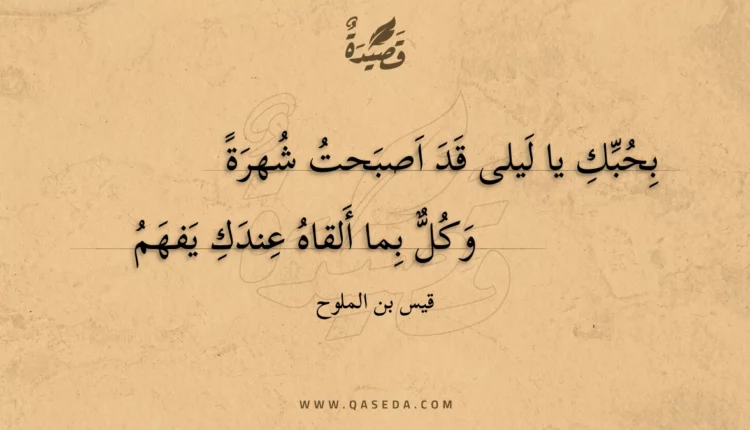 قَصِيْدَةٌ
بِحُبِّكِ يا لَيلى قَدَ اَصبَحتُ شُهرَةً
وَكُلٌّ بِما أَلقاهُ عِندَكِ يَفهَمُ
قيس بن الملوح
WWW.QASEDA.COM